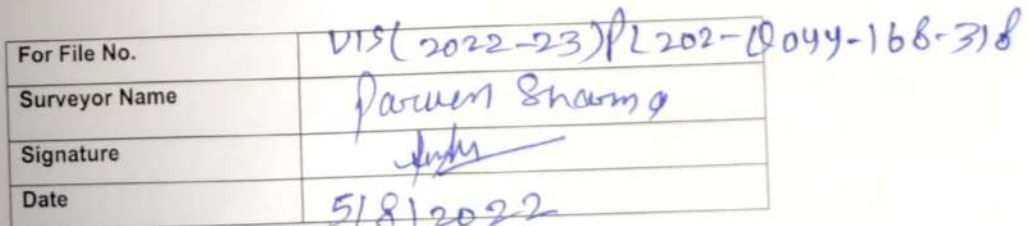 For File No. VIS(2022-23)PL202-Q044-168-318
Surveyor Name Parveen Sharma
Signature
Date 5/8/2022